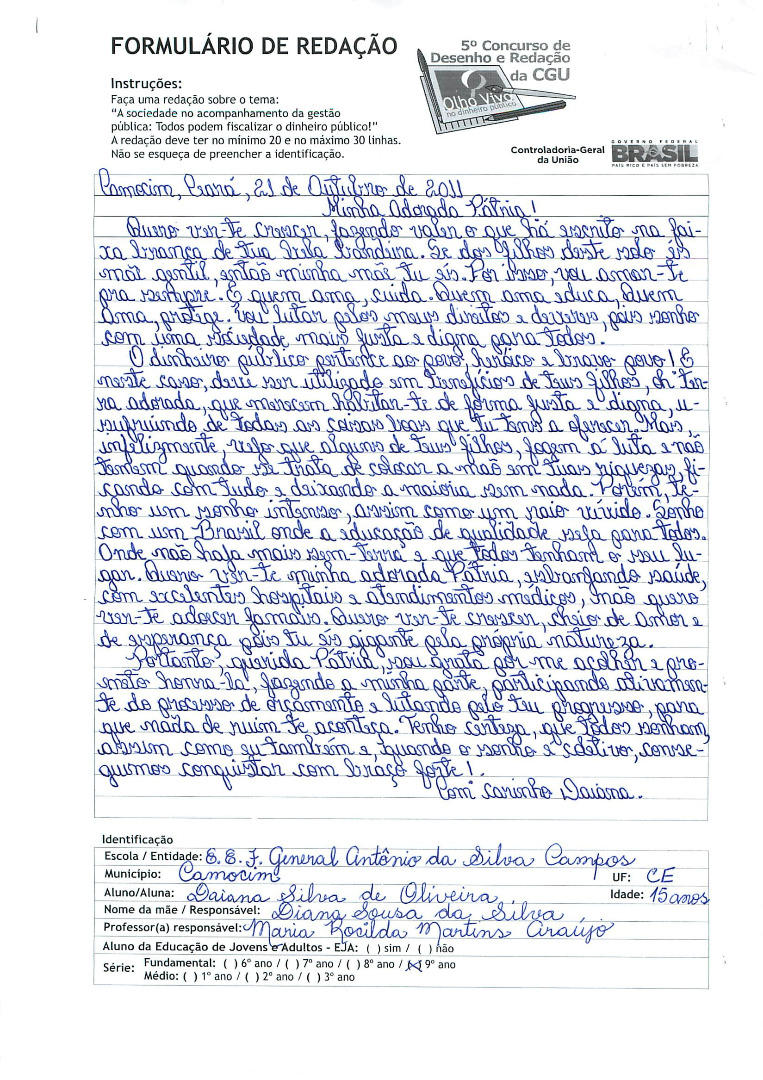 FORMULÁRIO DE REDAÇÃO
5º Concurso de
Desenho e Redação
da CGU
Olho Vivo
no dinheiro público
Instruções:
Faça uma redação sobre o tema:
"A sociedade no acompanhamento da gestão
pública: Todos podem fiscalizar o dinheiro público!"
A redação deve ter no mínimo 20 e no máximo 30 linhas.
Não se esqueça de preencher a identificação.
Controladoria-Geral
da União
GOVERNO FEDERAL
BRASIL
PAÍS RICO É PAÍS SEM POBREZA
Camocim, Ceará, 21 de Outubro de 2011
Minha Adorada Pátria!
Quero ver-te crescer, fazendo valer o que há escrito na fai-
xa branca de tua bela bandeira. Se dos filhos deste solo és
mãe gentil, então minha mãe tu és. Por isso, vou amar-te
pra sempre. E quem ama, cuida. Quem ama educa, Quem
Ama, protege. Vou lutar pelos meus direitos e deveres, pois sonho
com uma sociedade mais justa e digna para todos.
O dinheiro público pertence ao povo, heróico e bravo povo! E
neste caso, deve ser utilizado em benefícios de teus filhos, oh ter-
ra adorada, que merecem habitar-te de forma justa e digna, u-
sufruindo de todas as coisas boas que tu tens a oferecer. Mas,
infelizmente, vejo que alguns de teus filhos, fogem à luta e não
temem quando se trata de colocar a mão em tuas riquezas, fi-
cando com tudo e deixando a maioria sem nada. Porém, te-
nho um sonho intenso, assim como um raio vívido. Sonho
com um Brasil onde a educação de qualidade seja para todos.
Onde não haja mais sem-terra e que todos tenham o seu lu-
gar. Quero ver-te minha adorada Pátria, esbanjando saúde,
com excelentes hospitais e atendimentos médicos, não quero
ver-te adoecer jamais. Quero ver-te crescer, cheio de amor e
de esperança pois tu és gigante pela própria natureza.
Portanto, querida Pátria, sou grata por me acolher e pro-
meto honra-lá, fazendo a minha parte, participando ativamen-
te do processo de orçamento e lutando pelo teu progresso, para
que nada de ruim te aconteça. Tenho certeza, que todos sonham,
assim como eu também e, quando o sonho é coletivo, conse-
guimos conquistar com braço forte!
Com carinho Daiana.
Identificação
Escola / Entidade: E. E. F. General Antônio da Silva Campos
Município: Camocim UF: CE
Aluno/Aluna: Daiana Silva de Oliveira Idade: 15 anos
Nome da mãe / Responsável: Diana Sousa da Silva
Professor(a) responsável: Maria Rocilda Martins Araújo
Aluno da Educação de Jovens e Adultos - EJA: ( ) sim / ( ) não
Série: Fundamental: ( ) 6º ano / ( ) 7º ano / ( ) 8º ano / (X) 9º ano
Médio: ( ) 1º ano / ( ) 2º ano / ( ) 3º ano